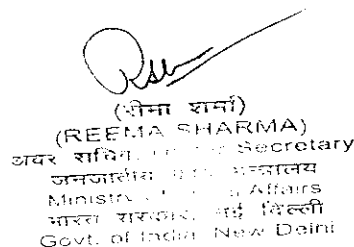 (रीमा शर्मा)
(REEMA SHARMA)
अवर सचिव Secretary
जनजातीय मंत्रालय
Ministry of Affairs
भारत सरकार, नई दिल्ली
Govt. of India New Delhi